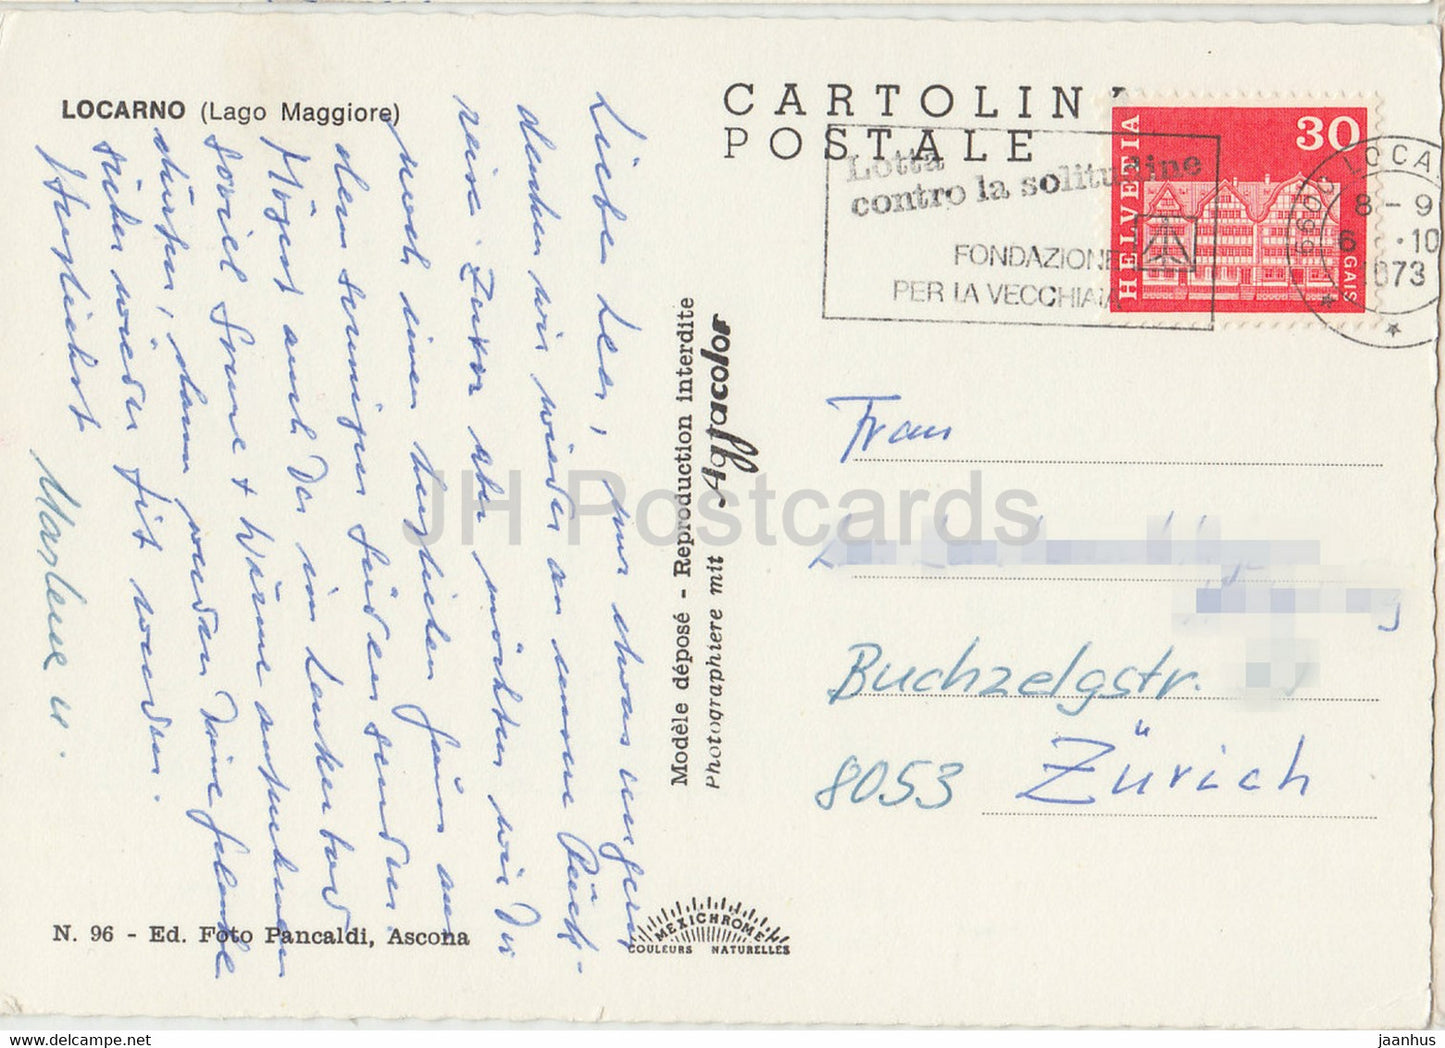 LOCARNO (Lago Maggiore)
CARTOLIN
POSTALE
Lotta
contro la solitudine
FONDAZIONE
PER LA VECCHIAIA
HELVETIA
30
GAIS
LOCA
8-9
6 .10
1973
Liebe Leer, nur etwas ungern
denken wir wieder an unsere Rück-
reise. Zuvor aber möchten wir Dir
noch einen herzlichen Gruss aus
dem sonnigen Süden senden.
Mögest auch Du in Leukerbad
soviel Sonne + Wärme auftanken
dürfen, dann werden Deine Gelenke
sicher wieder fit werden.
Herzlichst
Marlene u.
Modèle déposé - Reproduction interdite
Photographiere mit Agfacolor
Frau
Buchzelgstr.
8053 Zürich
N. 96 - Ed. Foto Pancaldi, Ascona
MEXICHROME
COULEURS NATURELLES
JH Postcards
www.delcampe.net
jaanhus